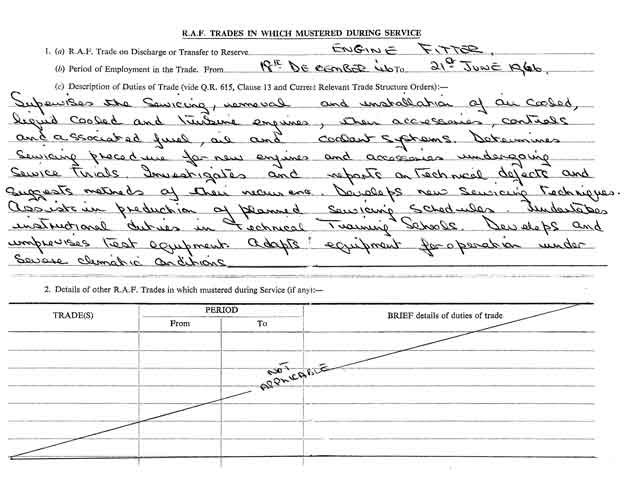 R.A.F. TRADES IN WHICH MUSTERED DURING SERVICE
1. (a) R.A.F. Trade on Discharge or Transfer to Reserve ENGINE FITTER.
(b) Period of Employment in the Trade. From 19TH DECEMBER 46 To 21st JUNE 1966.
(c) Description of Duties of Trade (vide Q.R. 615, Clause 13 and Current Relevant Trade Structure Orders):—
Supervises the Servicing, removal and installation of air cooled,
liquid cooled and turbine engines, their accessories, controls
and associated fuel, oil and coolant systems. Determines
Servicing procedure for new engines and accessories undergoing
Service Trials. Investigates and reports on technical defects and
suggests methods of their recurrence. Develops new Servicing Techniques.
Assists in production of planned servicing schedules. Undertakes
instructional duties in Technical Training Schools. Develops and
improvises test equipment. Adapts equipment for operation under
Severe climatic conditions.
2. Details of other R.A.F. Trades in which mustered during Service (if any):—
TRADE(S)
PERIOD
From
To
BRIEF details of duties of trade
NOT
APPLICABLE